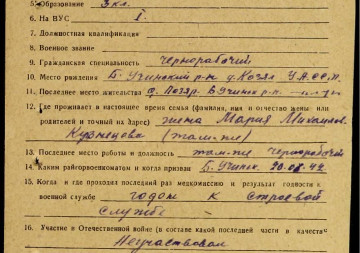 5. Образование 3 кл.
6. На ВУС I.
7. Должностная квалификация
8. Военное звание
9. Гражданская специальность чернорабочий
10. Место рождения Б. Учинский р-н д. Козял У.А.ССР.
11. Последнее место жительства
12. Где проживает в настоящее время семья (фамилия, имя и отчество жены или
родителей и точный их адрес) жена Мария Михайлов.
Кузнецова (там-же)
13. Последнее место работы и должность там-же чернорабочий
14. Каким райгорвоенкоматом и когда призван Б. Учинск. 20.08.42
15. Когда и где проходил последний раз медкомиссию и результат годности к
военной службе годен к строевой
службе
16. Участие в Отечественной войне (в составе какой последней части в качестве
Неучаствовал